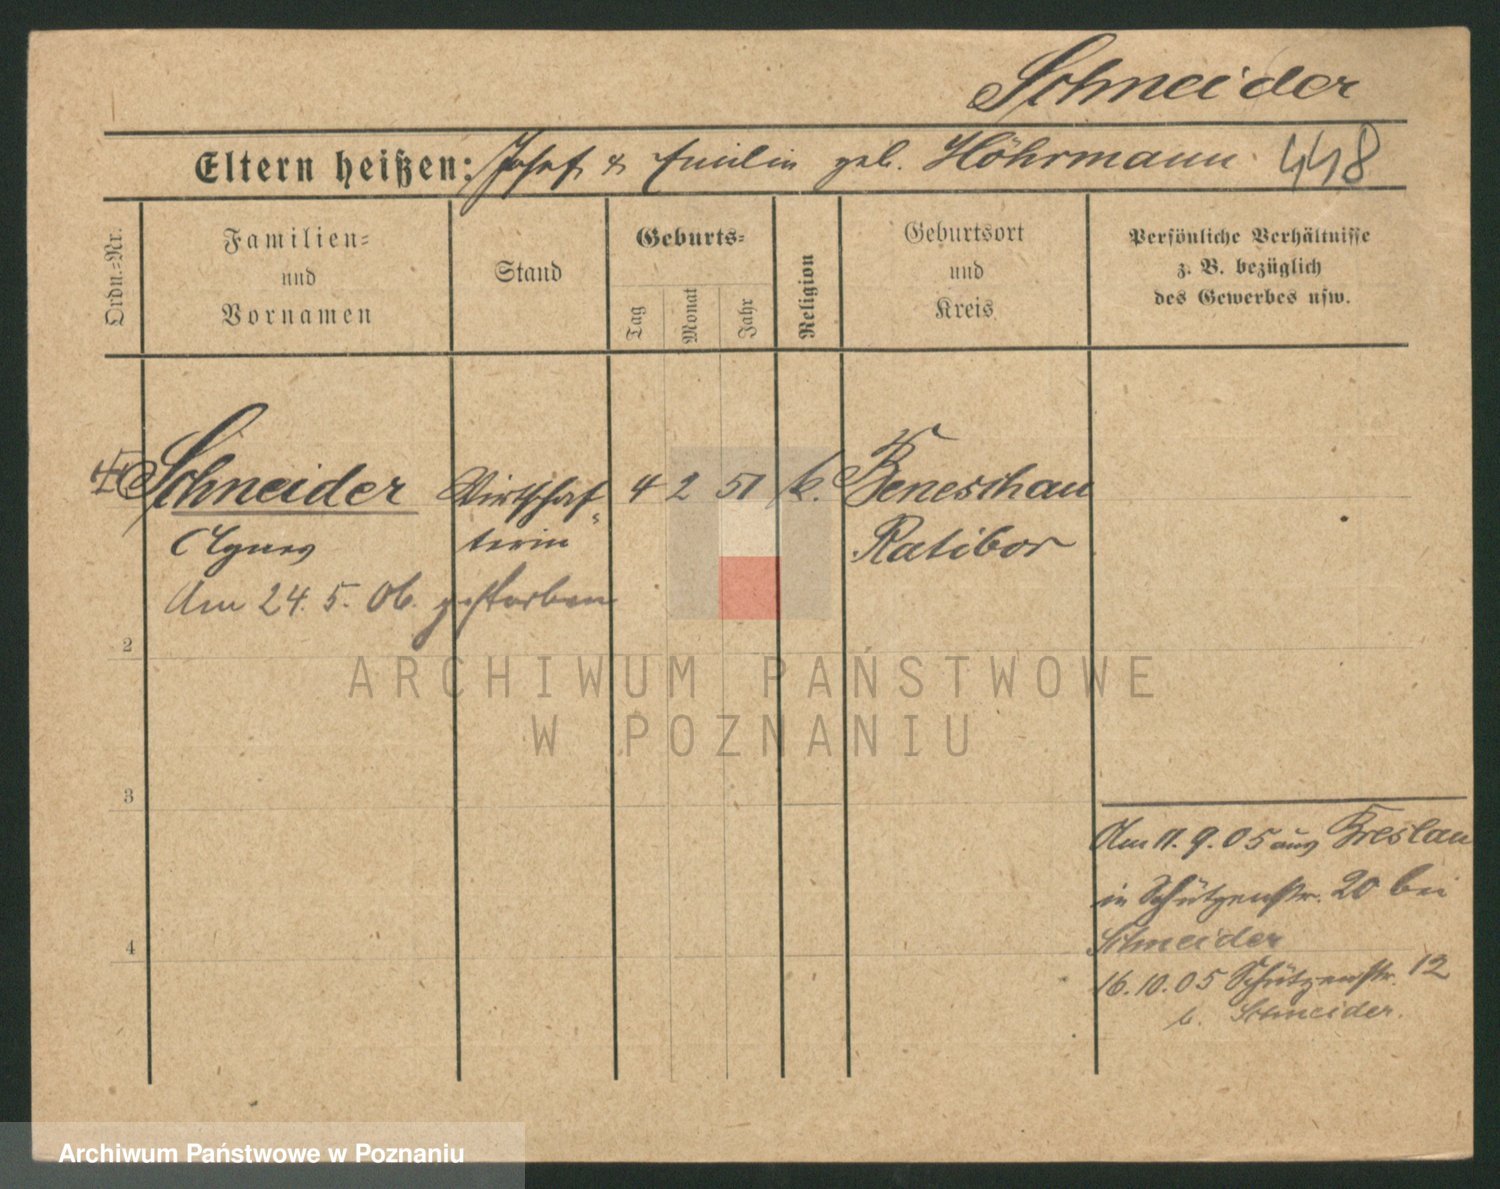 Schneider
Eltern heißen: Josef & Emilie geb. Höhrmann. 448
Ordn.=Nr.
Familien= und Vornamen
Stand
Geburts=
Tag
Monat
Jahr
Religion
Geburtsort und Kreis
Persönliche Verhältnisse z. B. bezüglich des Gewerbes usw.
Schneider Wirtschaf= 4 2 51 k. Beneschau
Agnes terin Ratibor
Am 24. 5. 06. gestorben
2
3
4
Am 11. 9. 05 aus Breslau
in Schützenstr. 20 bei
Schneider
16. 10. 05 Schützenstr. 12
b. Schneider.
ARCHIWUM PAŃSTWOWE
W POZNANIU
Archiwum Państwowe w Poznaniu